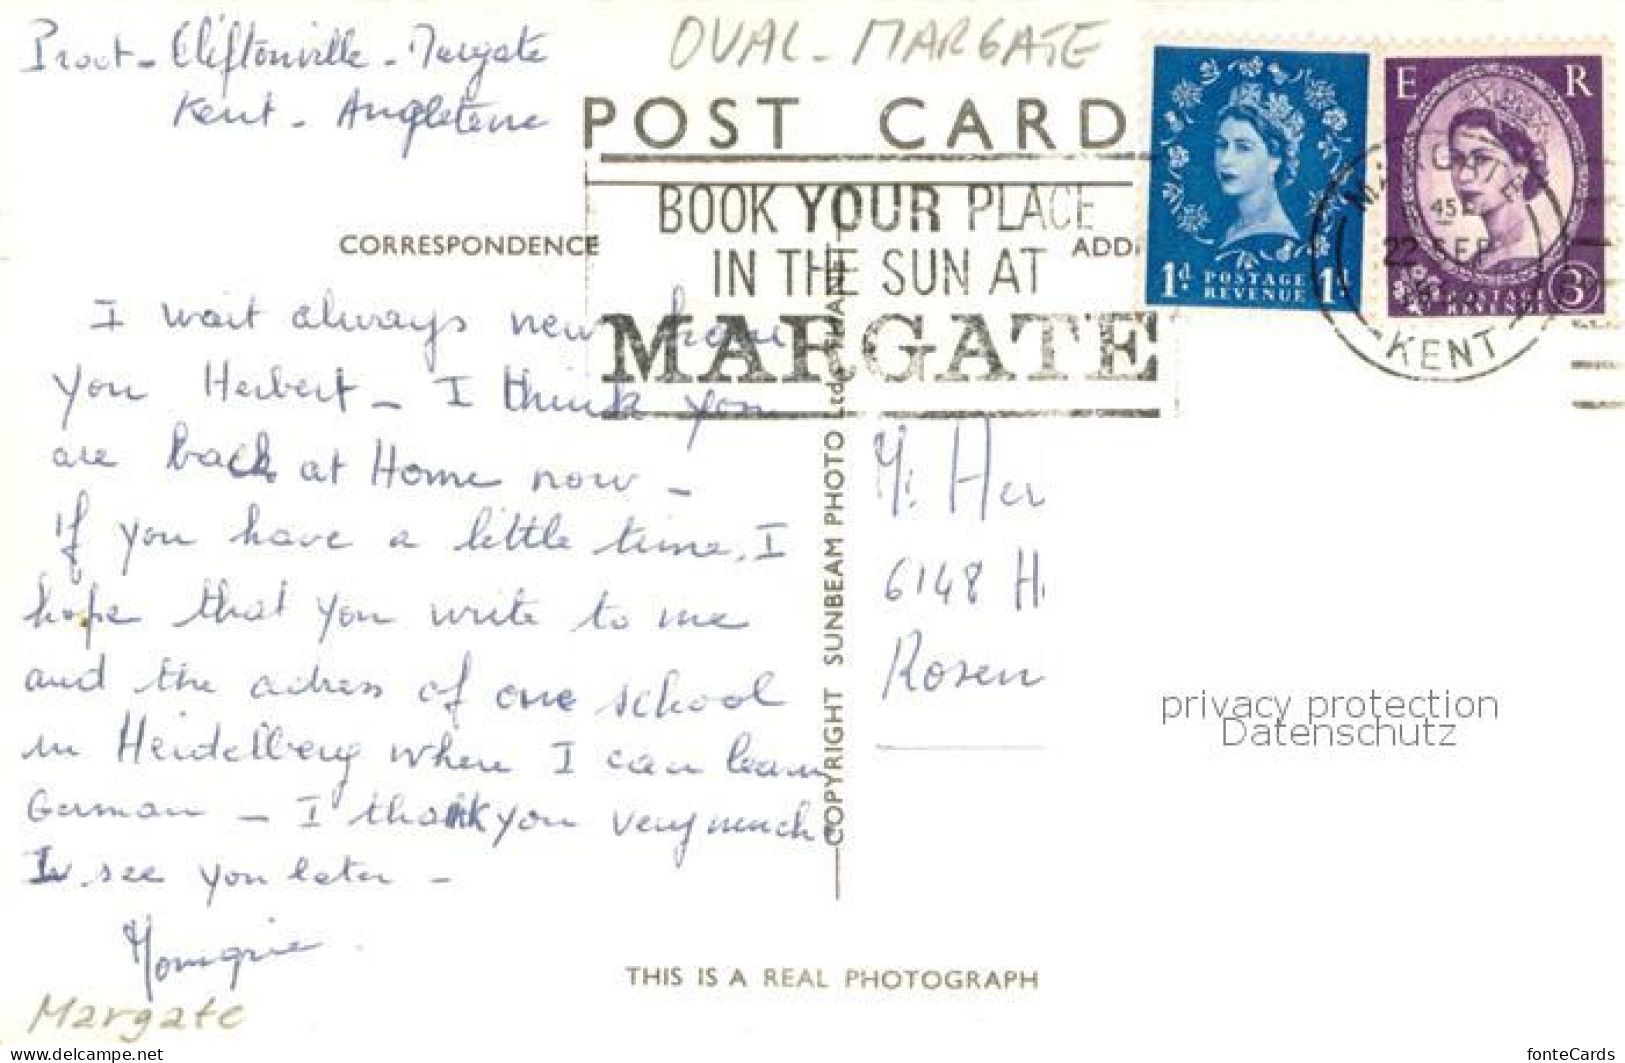 OVAL - MARGATE
Proot - Cliftonville - Margate
Kent - Angleterre
POST CARD
BOOK YOUR PLACE
IN THE SUN AT
MARGATE
1d. POSTAGE REVENUE 1d.
E R
POSTAGE
REVENUE
3
MARGATE
45
22 SEP
KENT
CORRESPONDENCE
ADD
I wait always new from
you Herbert - I think you
are back at Home now -
If you have a little time, I
hope that you write to me
and the adress of one school
in Heidelberg where I can learn
German - I thank you very much
see you later -
Monique
Margate
COPYRIGHT SUNBEAM PHOTO Ltd.
Her
6148 H
Rosen
privacy protection
Datenschutz
THIS IS A REAL PHOTOGRAPH
www.delcampe.net
fonteCards